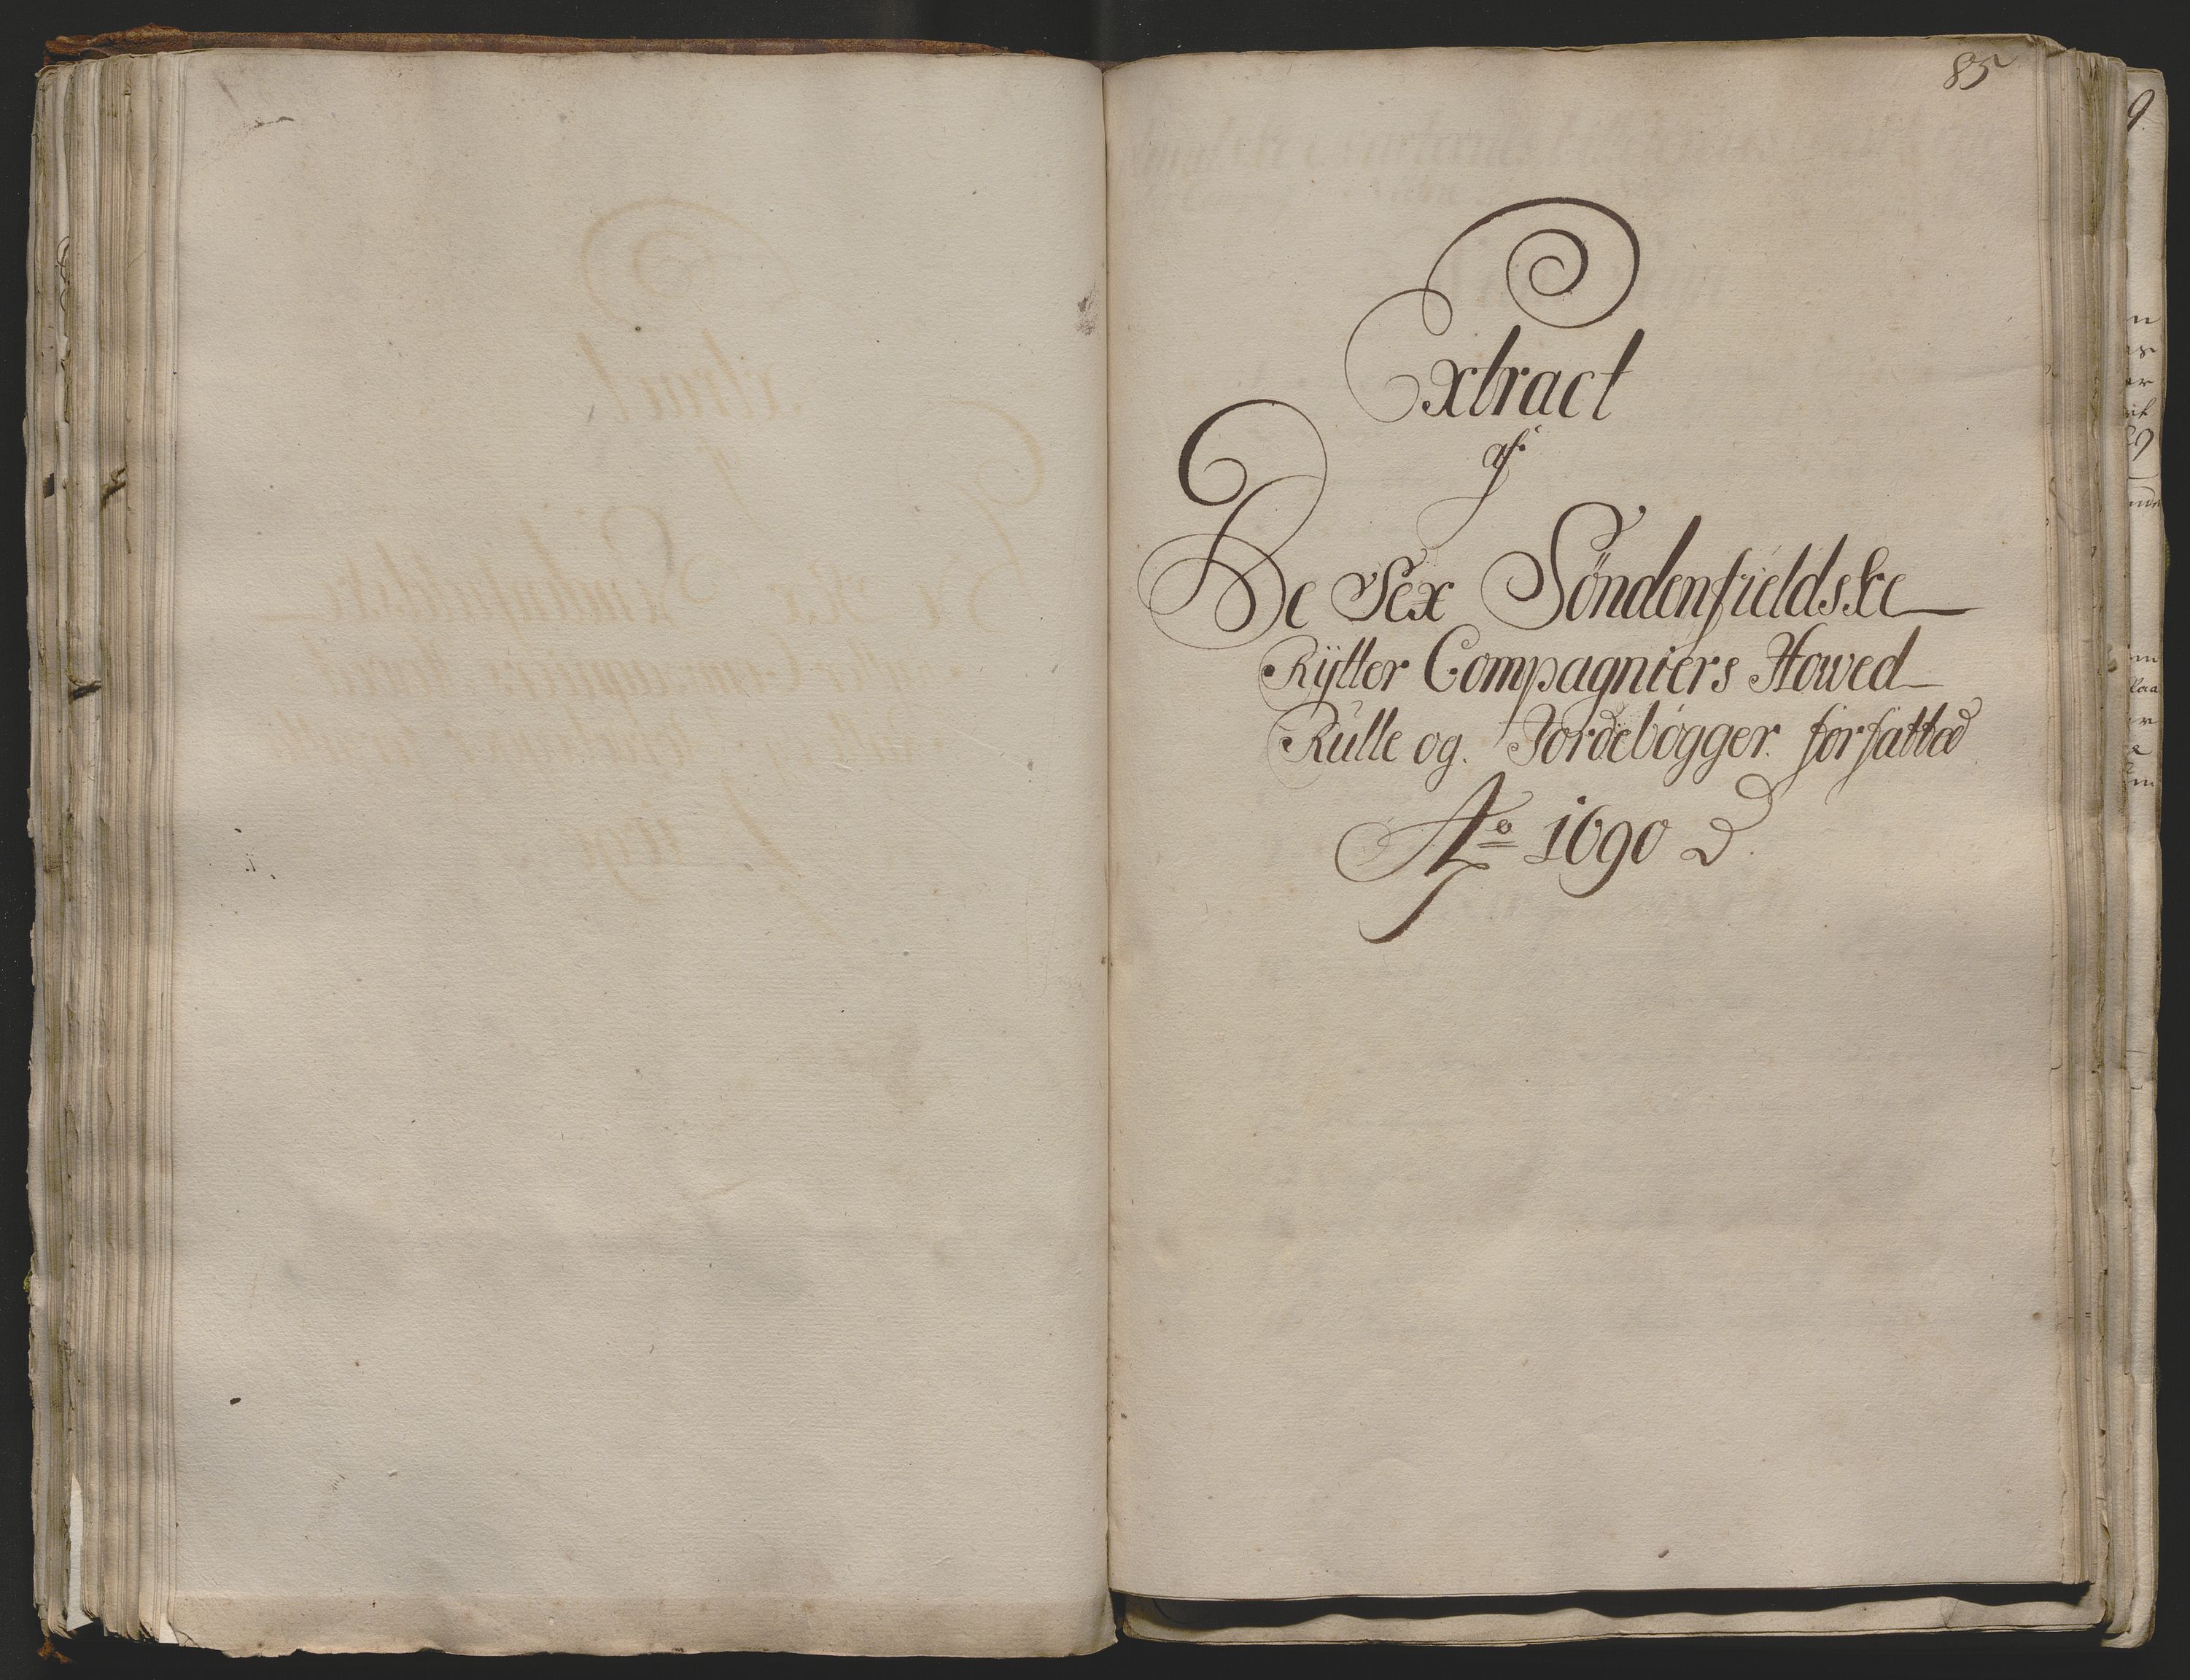 85
Extract
af
De Sex Søndenfieldske
Rÿtter Compagniers Howed
Rulle og Jordebøgger forfatted
Aº 1690